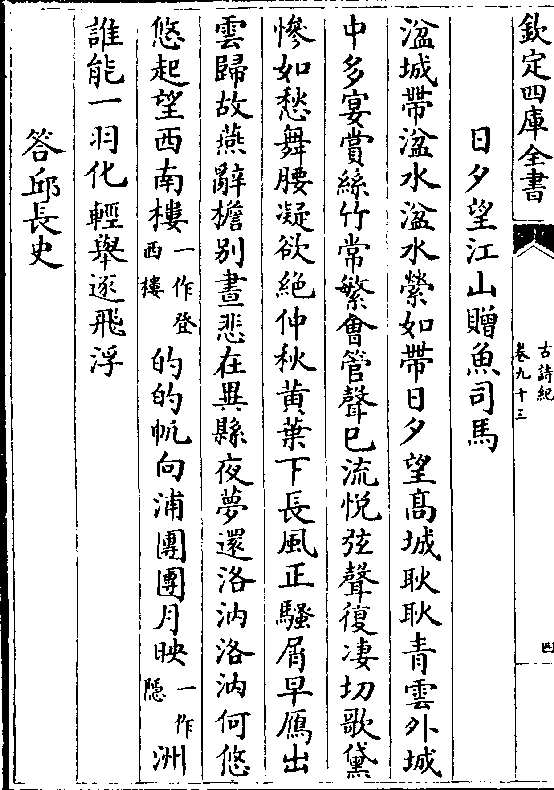 欽定四庫全書
古詩紀
卷九十三
四
日夕望江山贈魚司馬
湓城帶湓水湓水縈如帶日夕望髙城耿耿青雲外城
中多宴賞絲竹常繁會管聲已流悦弦聲復淒切歌黛
慘如愁舞腰凝欲絶仲秋黄葉下長風正騷屑早鴈出
雲歸故燕辭檐别晝悲在異縣夜夢還洛汭洛汭何悠
悠起望西南樓一作登西樓的的帆向浦團團月映一作隱洲
誰能一羽化輕舉逐飛浮
答邱長史